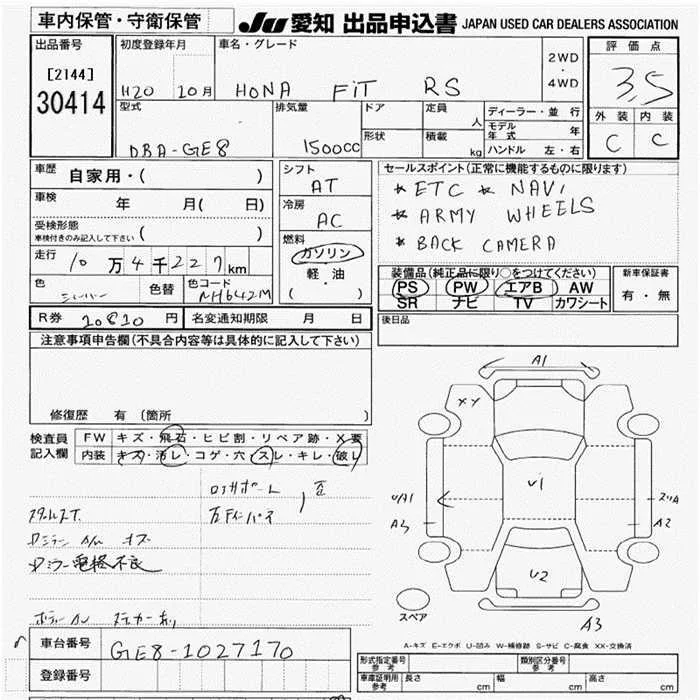 車内保管・守衛保管
JU 愛知 出品申込書 JAPAN USED CAR DEALERS ASSOCIATION
出品番号
[2144]
30414
初度登録年月
H20 10月
車名・グレード
HONA FIT RS
2WD
・
4WD
評価点
3,5
外装 内装
C C
型式
DBA-GE8
排気量
1500cc
ドア
形状
定員
人
積載
kg
ディーラー・並行
モデル年式 年
ハンドル 左・右
車歴
自家用・( )
車検
年 月( 日)
受検形態
車検付きのみ記入して下さい ( )
走行
10万4千227km
色
シルバー
色替
色コード
NH642M
シフト
AT
冷房
AC
燃料
ガソリン
軽・油
( )
セールスポイント(正常に機能するものに限ります)
* ETC * NAVi
* ARMY WHEELS
* BACK CAMERA
装備品(純正品に限り○をつけてください)
PS PW エアB AW
SR ナビ TV カワシート
新車保証書
有・無
R券 10810 円
名変通知期限 月 日
後日品
注意事項申告欄(不具合内容等は具体的に記入して下さい)
修復歴 有(箇所 )
検査員記入欄
FW キズ・飛石・ヒビ割・リペア跡・X要
内装 キズ・汚レ・コゲ・穴・スレ・キレ・破レ
電格不良
A1
XY
U1
U/A1
A3
A2
U2
A3
スペア
A-キズ E-エクボ U-凹み W-補修跡 S-サビ C-腐食 XX-交換済
車台番号
GE8-1027170
登録番号
形式指定番号 参考
類別区分番号 参考
車庫証明用 参考
長さ cm
幅 cm
高さ cm